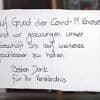 Auf Grund der Covid-19 Krise
sind wir gezwungen unser
Geschäft bis auf weiteres
geschlossen zu halten.
Besten Dank
für Ihr Verständnis